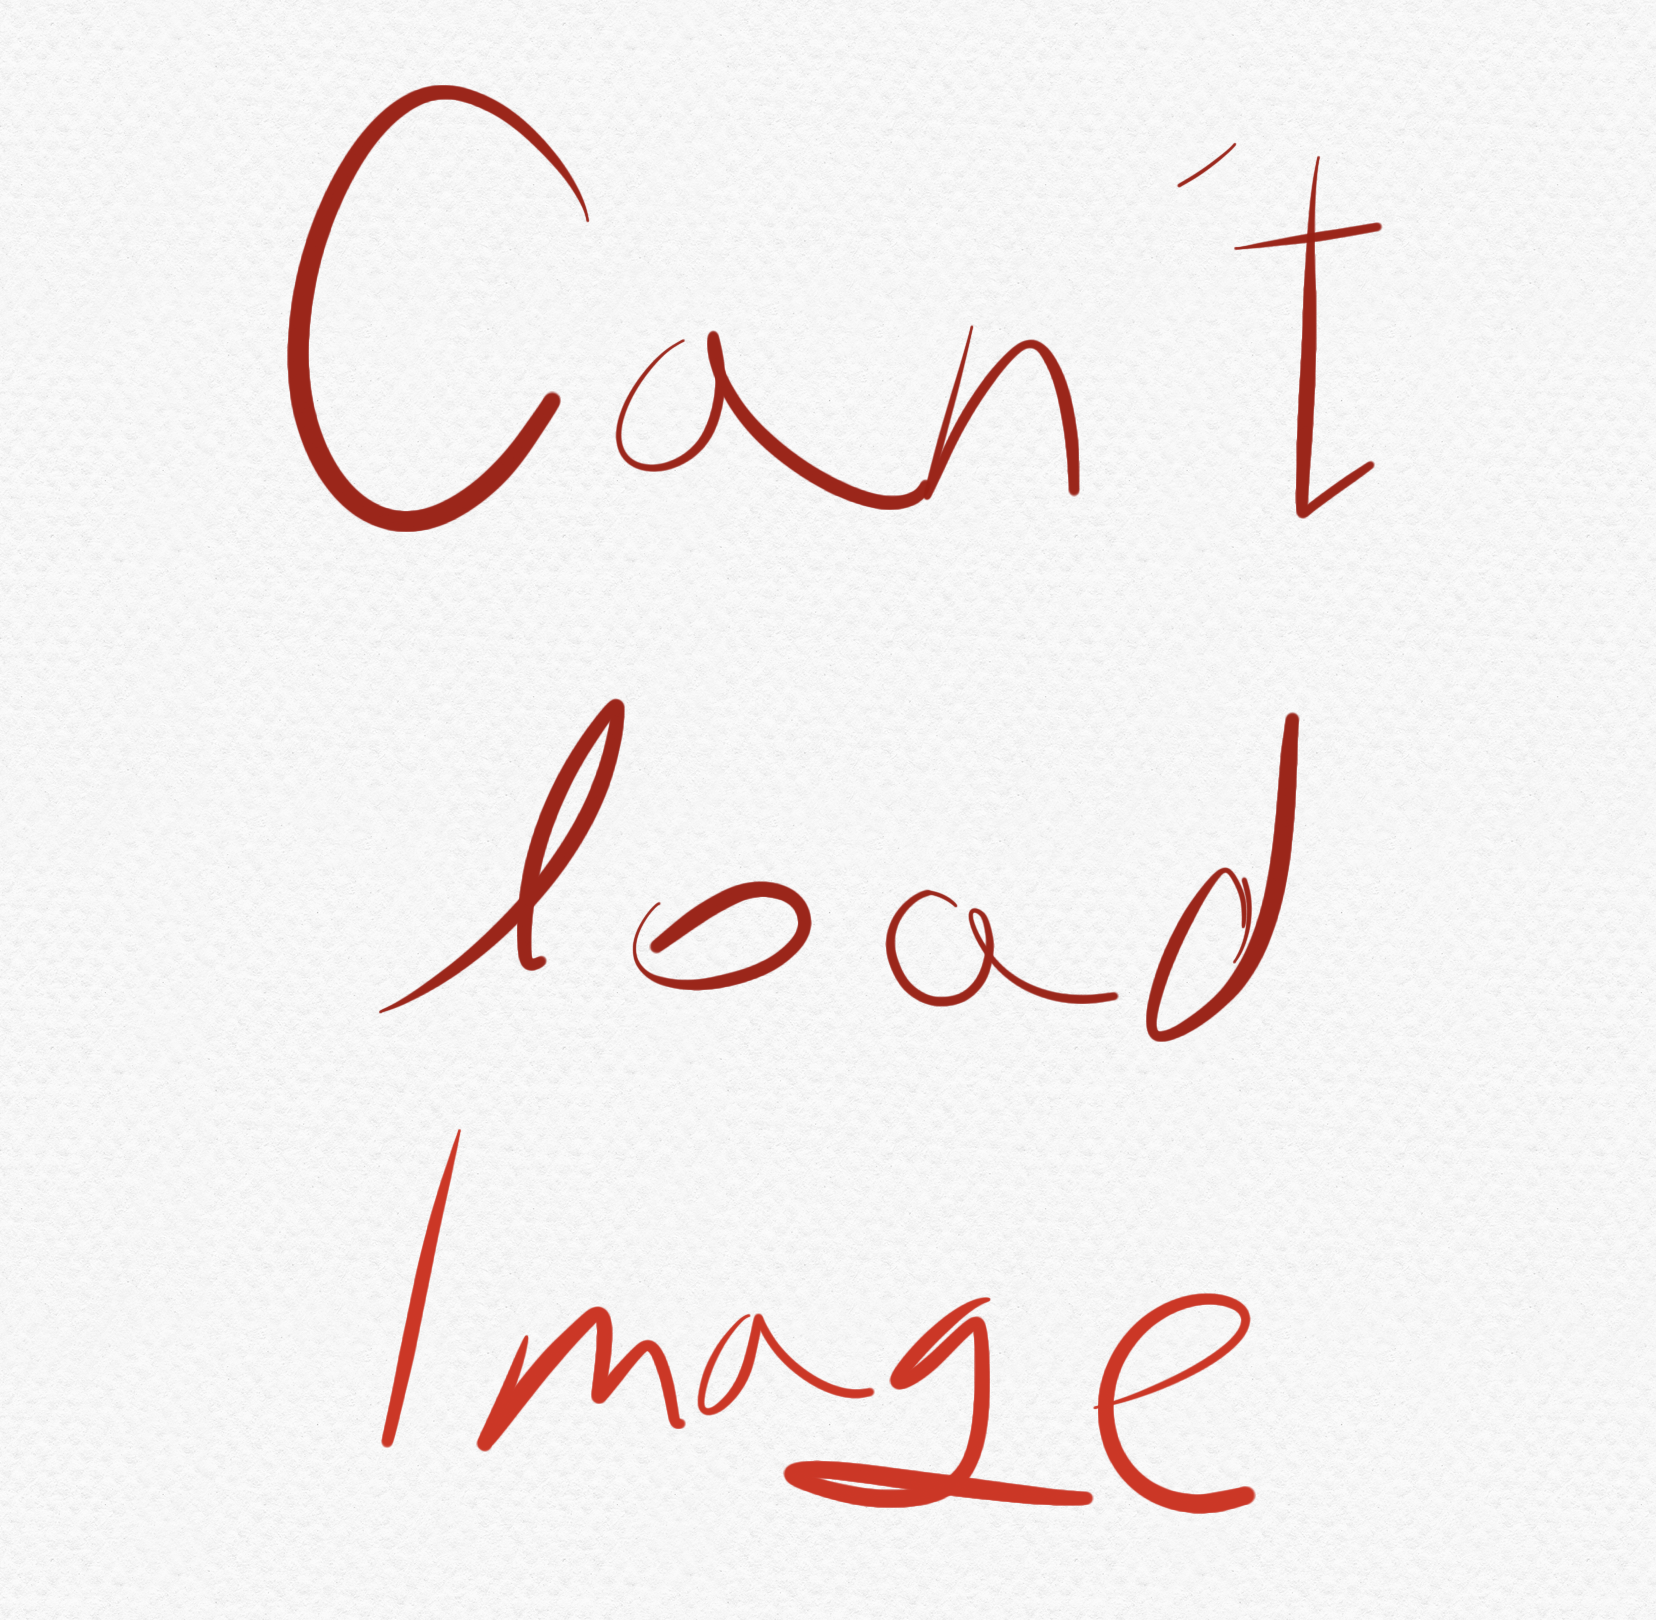 Can't
load
Image